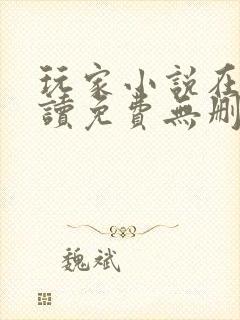 玩家小説在
讀免費無刪
魏斌